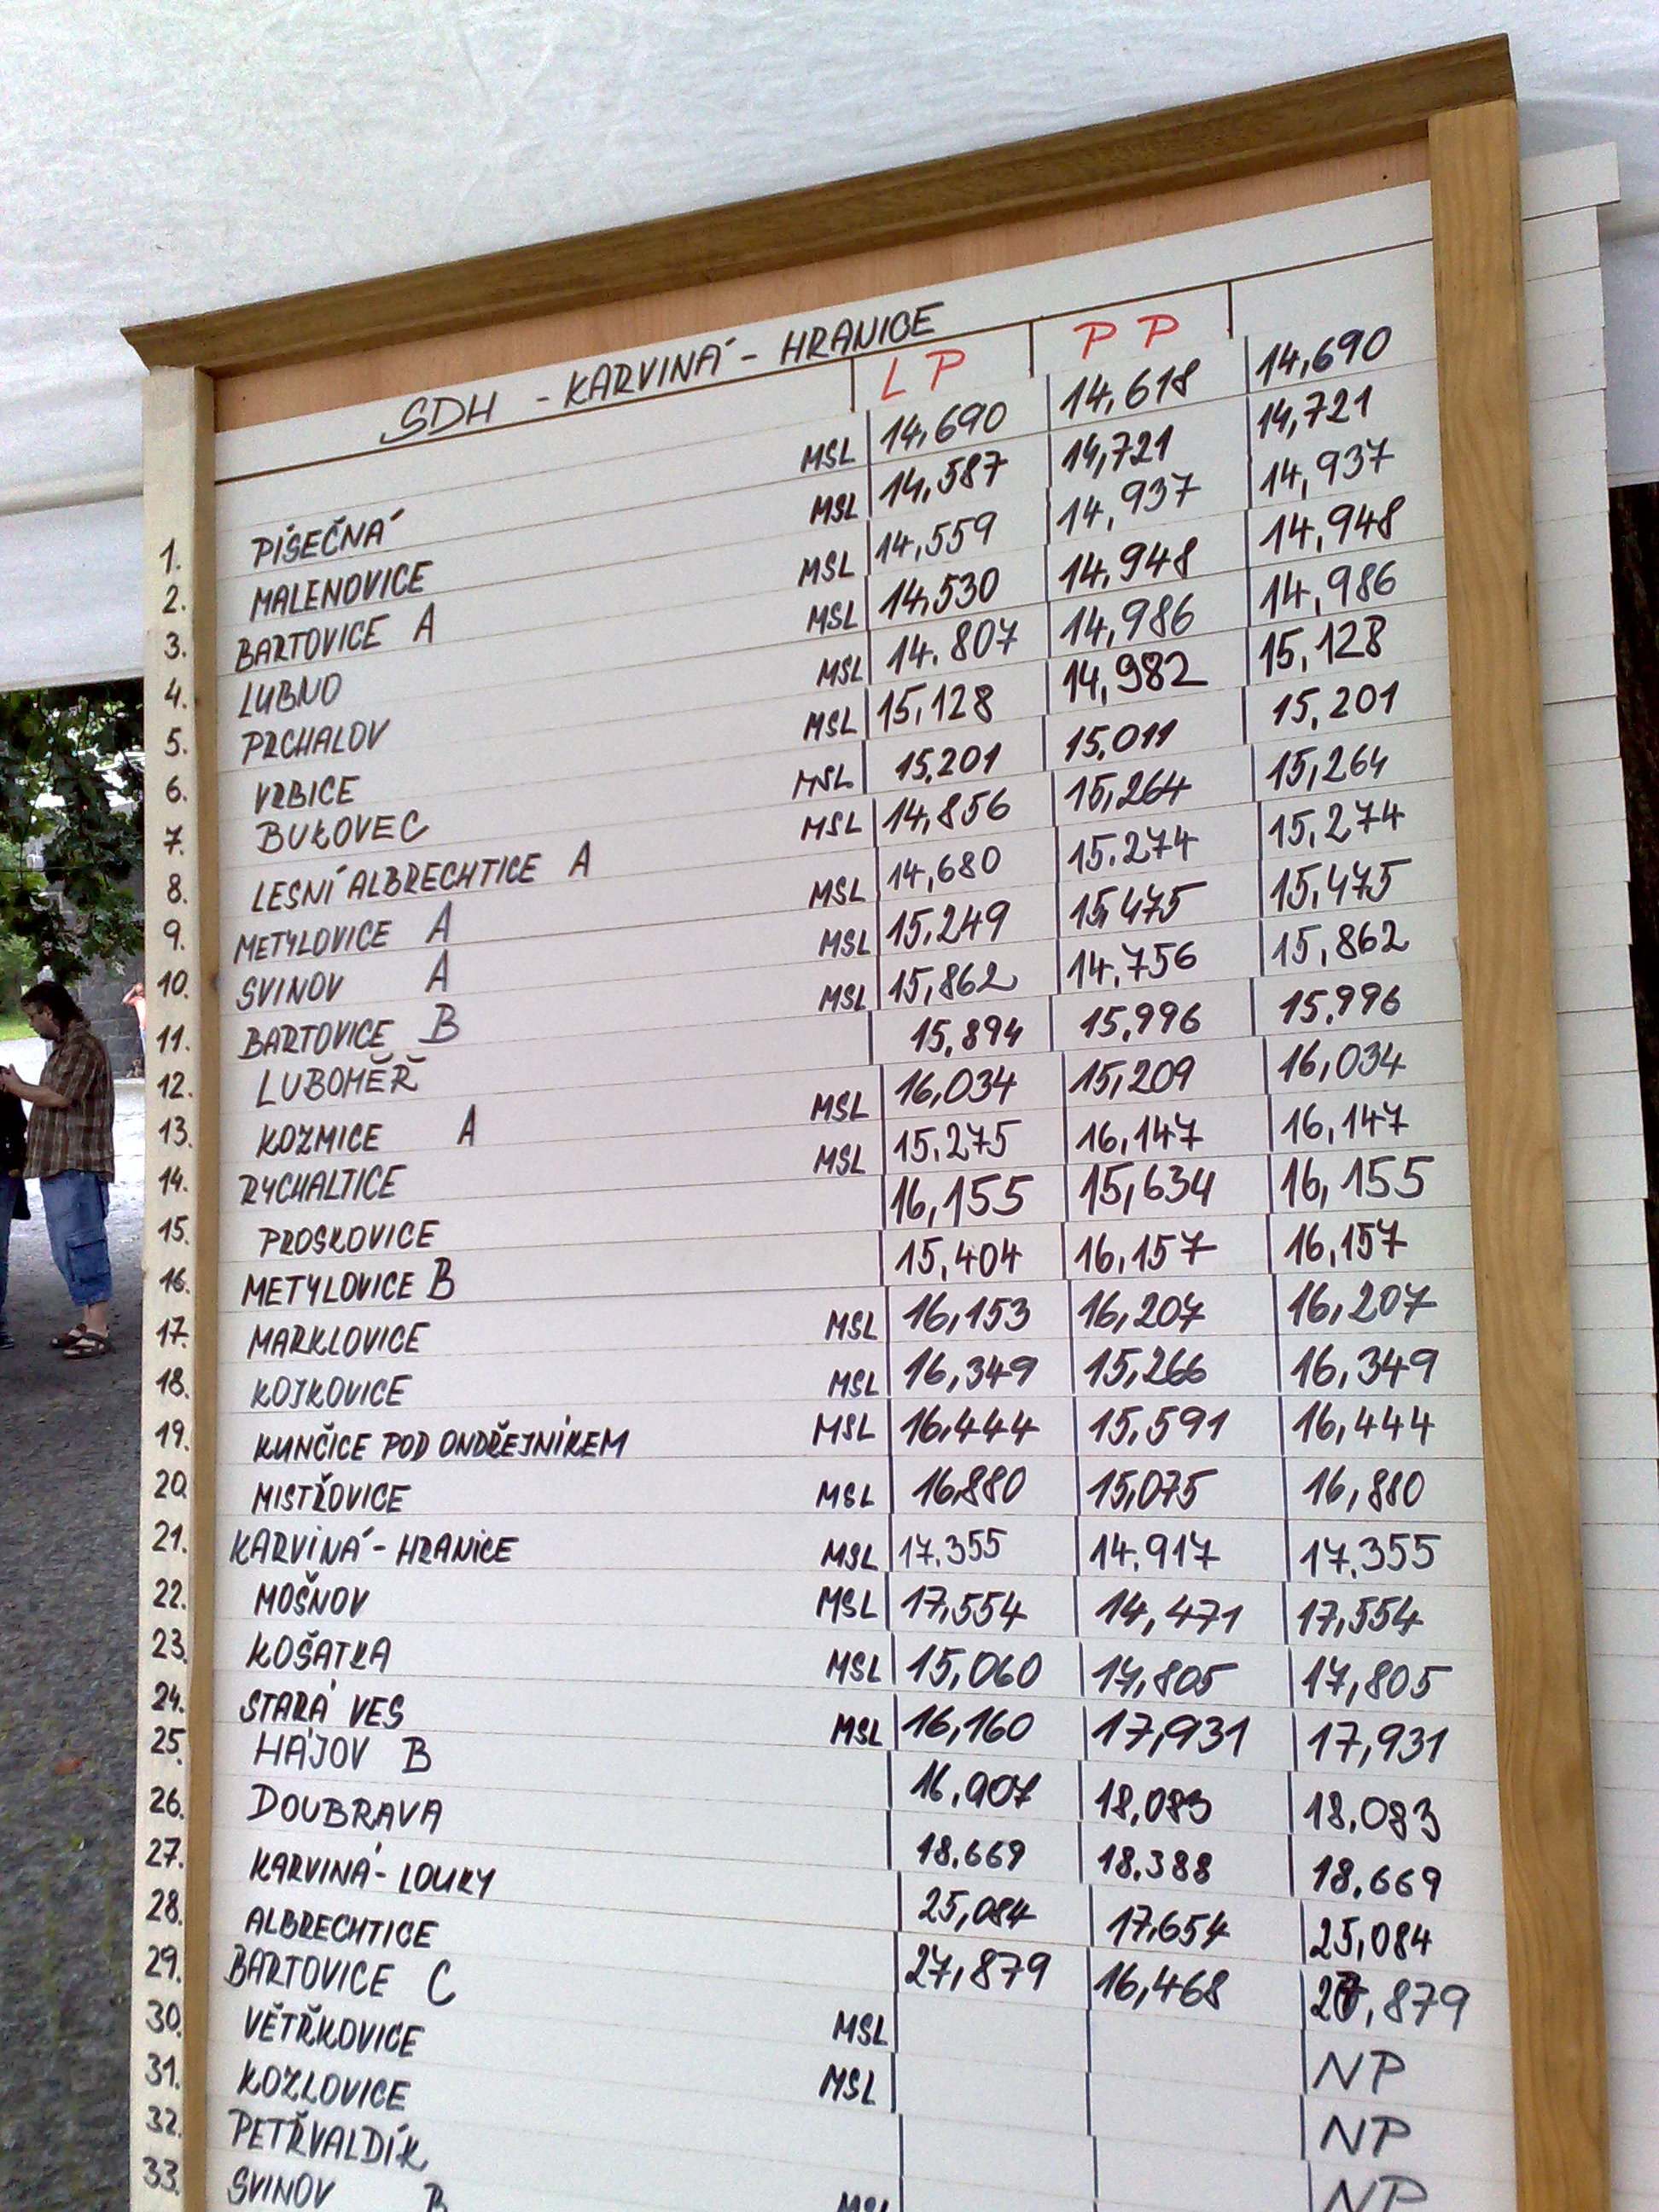 SDH - KARVINÁ - HRANICE LP PP
1. PÍSEČNÁ MSL 14,690 14,618 14,690
2. MALENOVICE MSL 14,587 14,721 14,721
3. BARTOVICE A MSL 14,559 14,937 14,937
4. LUBNO MSL 14,530 14,948 14,948
5. PRCHALOV MSL 14.807 14,986 14,986
6. VRBICE MSL 15,128 14,982 15,128
7. BUKOVEC MSL 15,201 15,011 15,201
8. LESNÍ ALBRECHTICE A MSL 14,856 15,264 15,264
9. METYLOVICE A MSL 14,680 15.274 15,274
10. SVINOV A MSL 15,249 15,475 15,475
11. BARTOVICE B MSL 15,862 14,756 15,862
12. LUBOMĚŘ 15,894 15,996 15,996
13. KOZMICE A MSL 16,034 15,209 16,034
14. RYCHALTICE MSL 15,275 16,147 16,147
15. PROSKOVICE 16,155 15,634 16,155
16. METYLOVICE B 15,404 16,157 16,157
17. MARKLOVICE MSL 16,153 16,207 16,207
18. KOJKOVICE MSL 16,349 15,266 16,349
19. KUNČICE POD ONDŘEJNÍKEM MSL 16,444 15,591 16,444
20. MISTŘOVICE MSL 16,880 15,075 16,880
21. KARVINÁ - HRANICE MSL 17.355 14,917 17,355
22. MOŠNOV MSL 17,554 14,471 17,554
23. KOŠATKA MSL 15,060 17,805 17,805
24. STARÁ VES MSL 16,160 17,931 17,931
25. HÁJOV B 16,907 18,083 18,083
26. DOUBRAVA 18.669 18.388 18,669
27. KARVINÁ - LOUKY 25,084 17,654 25,084
28. ALBRECHTICE 27,879 16,468 27,879
29. BARTOVICE C MSL NP
30. VĚTŘKOVICE MSL NP
31. KOZLOVICE NP
32. PETŘVALDÍK MSL
33. SVINOV B